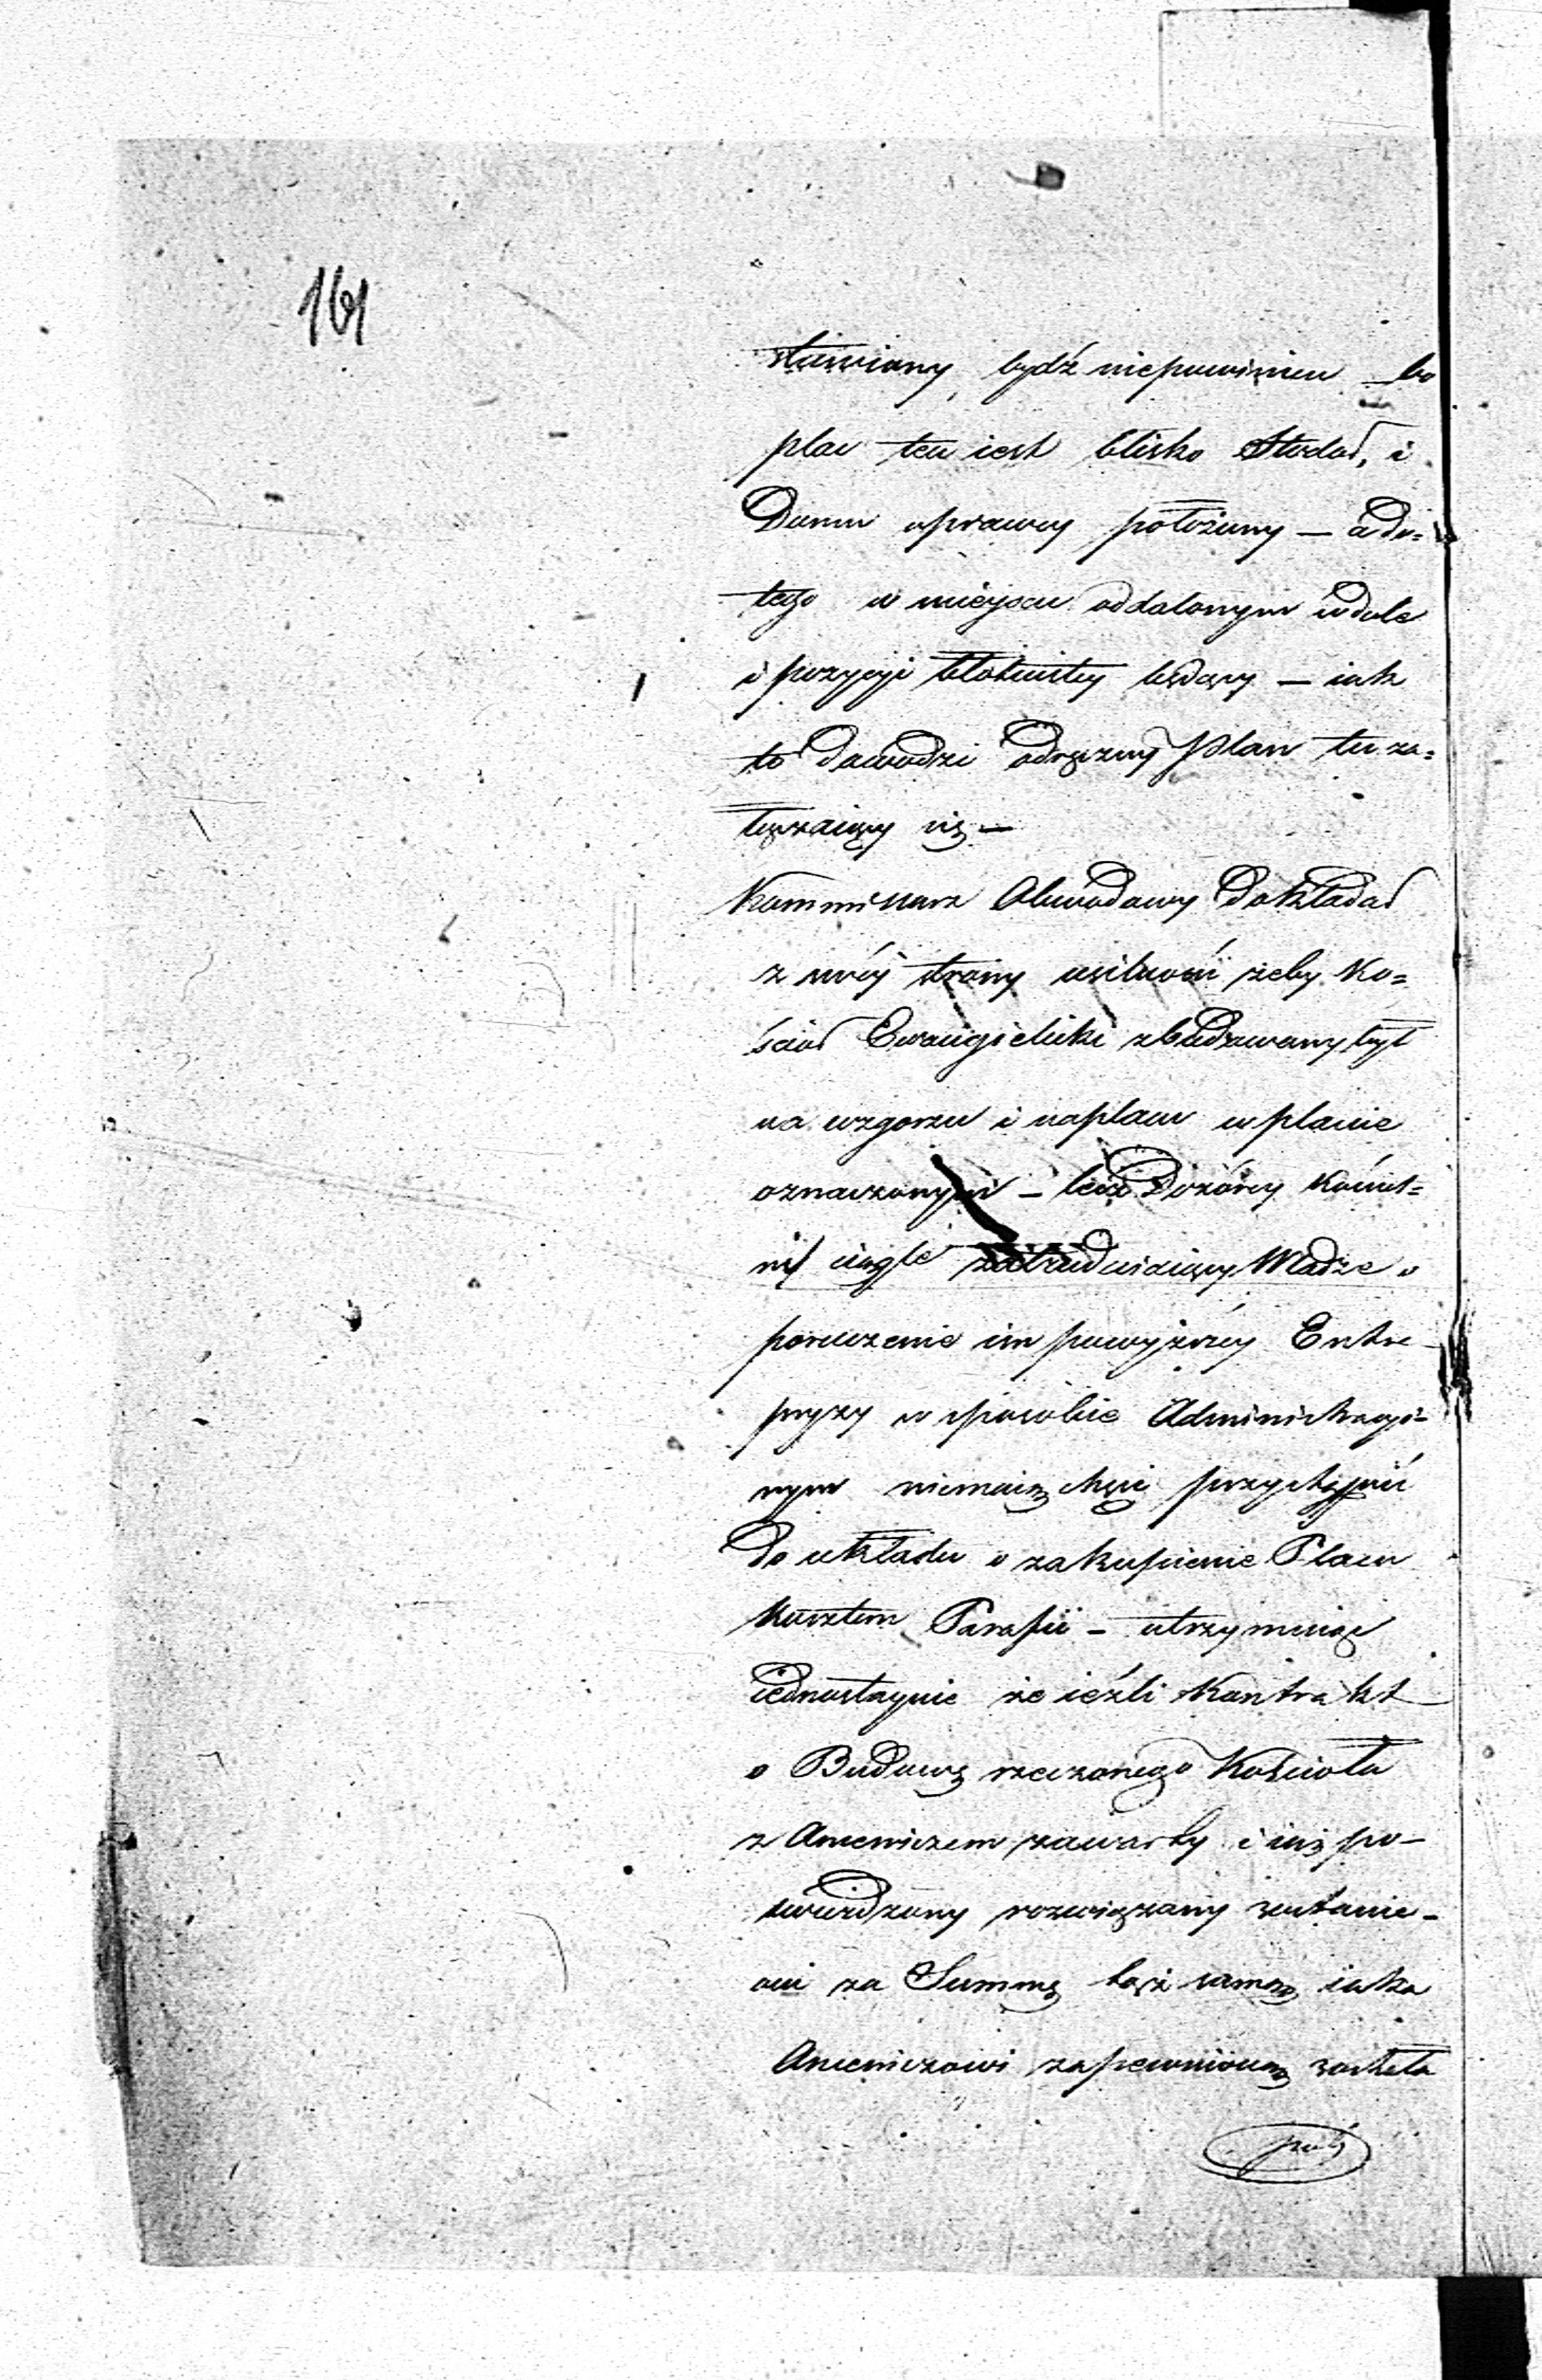 161
stawiany bydź niepowinien – bo
plac ten iest blisko Stodoł, i
Domu oprawcy położony – a do=
tego w mieyscu oddalonym w dole
i pozycyi błotnistey będący – iak
to dowodzi odręczny Plan tu za=
łączaiący się –
Kommissarz Obwodowy dokładał
z swéj strony usilności żeby Ko=
ściół Ewangielicki zbudowany był
na wzgorzu i na placu w planie
oznaczonym – lecz Dozórcy Kościel=
ni ciągle zatrudniaiący Władze o
poruczenie im powyższéy Entre
pryzy w sposobie Administracyi=
nym niemaią chęci przystąpić
do układu o zakupienie Placu
kosztem Parafii – utrzymuiąc
iednostaynie że ieżli Kontrakt
o Budowę rzeczonego Kościoła
z Anceniczem zawarty i iuż po–
twierdzony rozwiązany zostanie –
oni za Summę tąż samą iaka
Anceniczowi zapewnioną została